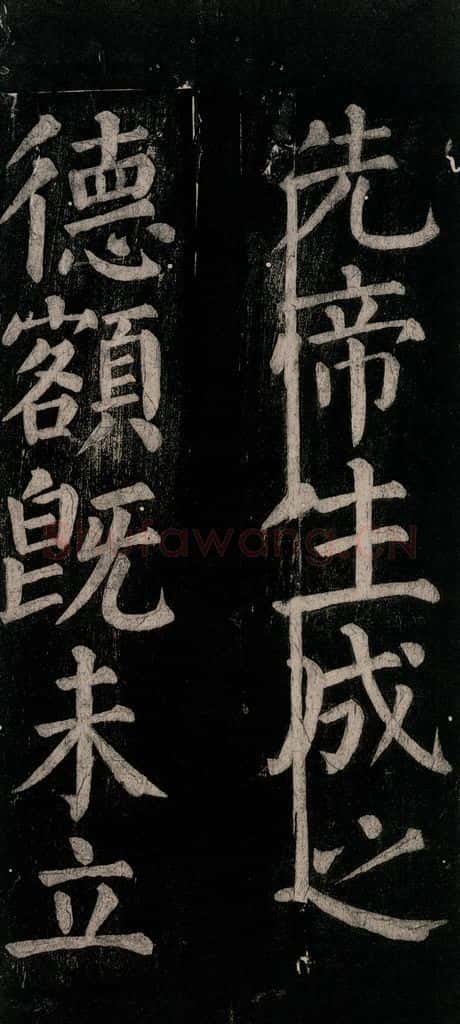 先帝生成之
德額既未立
Shufawang.CN